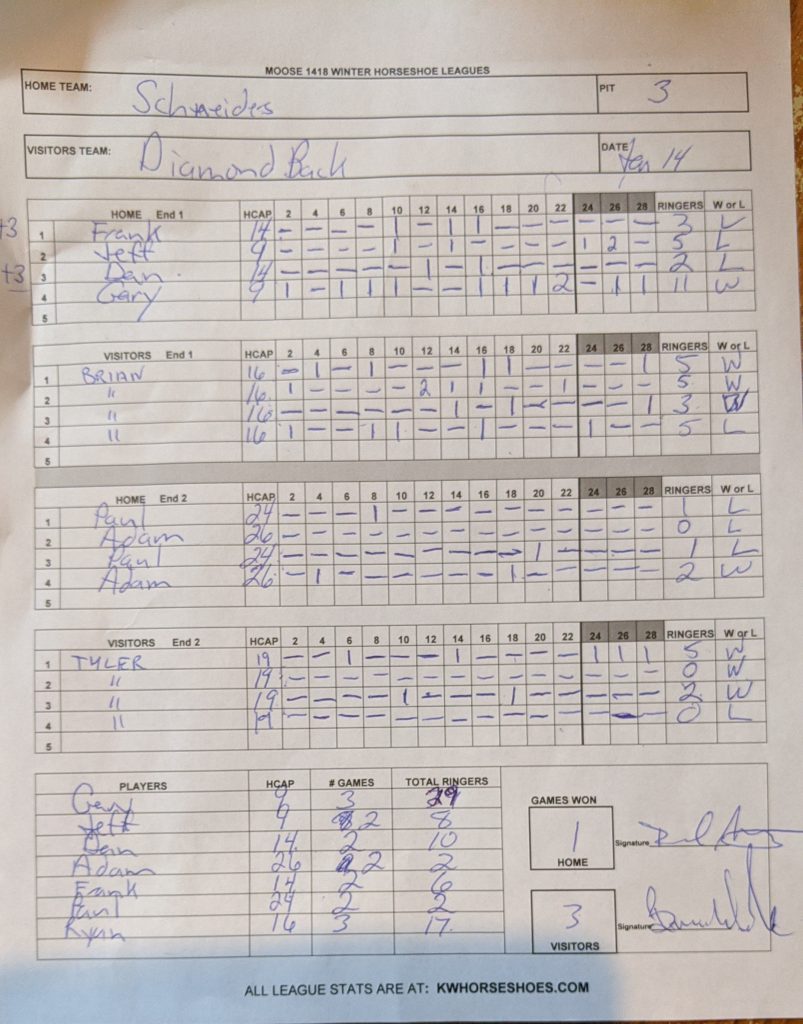 MOOSE 1418 WINTER HORSESHOE LEAGUES
HOME TEAM: Schneiders PIT 3
VISITORS TEAM: Diamond Back DATE Jan 14
HOME End 1 HCAP 2 4 6 8 10 12 14 16 18 20 22 24 26 28 RINGERS W or L
+3 1 Frank 14 - - - - 1 - 1 1 - - - - - - 3 L
2 Jeff 9 - - - - 1 - 1 - - - - 1 2 - 5 L
+3 3 Dan 14 - - - - - 1 - 1 - - - - - - 2 L
4 Gary 9 1 - 1 1 1 - - 1 1 1 2 - 1 1 11 W
5
VISITORS End 1 HCAP 2 4 6 8 10 12 14 16 18 20 22 24 26 28 RINGERS W or L
1 BRIAN 16 - 1 - 1 - - - 1 1 - - - - 1 5 W
2 " 16 1 - - - - 2 1 1 - - 1 - - - 5 W
3 " 16 - - - - - - 1 - 1 - - - - 1 3 W
4 " 16 1 - - 1 1 - - 1 - - - 1 - - 5 L
5
HOME End 2 HCAP 2 4 6 8 10 12 14 16 18 20 22 24 26 28 RINGERS W or L
1 Paul 24 - - - 1 - - - - - - - - - - 1 L
2 Adam 26 - - - - - - - - - - - - - - 0 L
3 Paul 24 - - - - - - - - - 1 - - - - 1 L
4 Adam 26 - 1 - - - - - - 1 - - - - - 2 W
5
VISITORS End 2 HCAP 2 4 6 8 10 12 14 16 18 20 22 24 26 28 RINGERS W or L
1 TYLER 19 - - 1 - - - 1 - - - - 1 1 1 5 W
2 " 19 - - - - - - - - - - - - - - 0 W
3 " 19 - - - - 1 - - - 1 - - - - - 2 W
4 " 19 - - - - - - - - - - - - - - 0 L
5
PLAYERS HCAP # GAMES TOTAL RINGERS
Gary 9 3
Jeff 9 2 8
Dan 14 2 10
Adam 26 2 2
Frank 14 2 6
Paul 24 2 2
Ryan 16 3 17
GAMES WON
1 Signature
HOME
3 Signature
VISITORS
ALL LEAGUE STATS ARE AT: KWHORSESHOES.COM